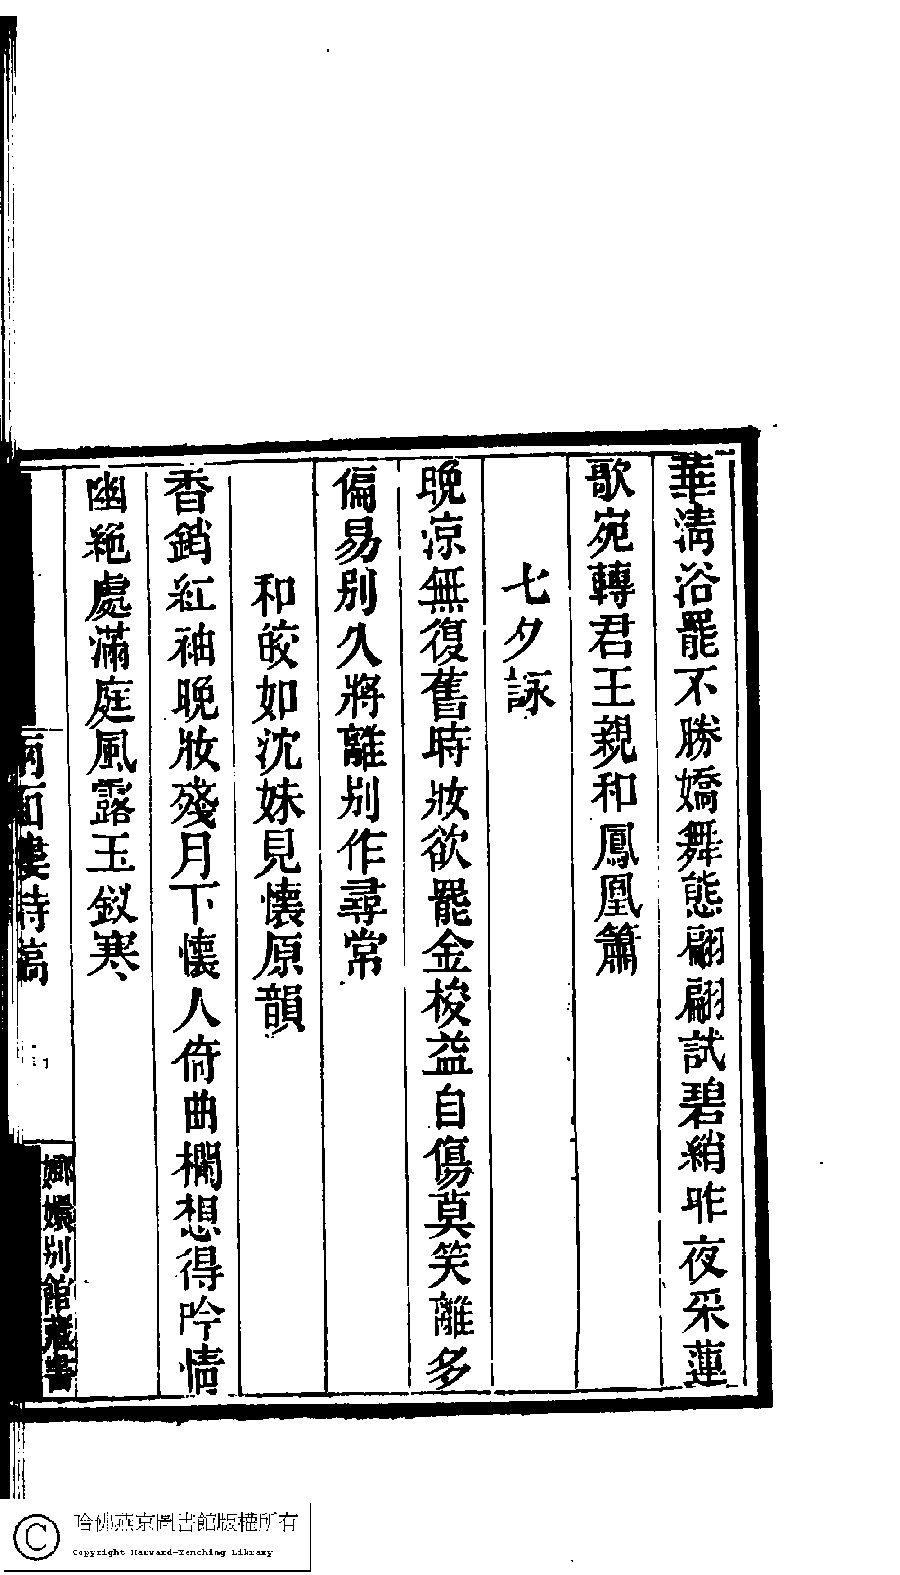 華清浴罷不勝嬌舞態翩翩試碧綃昨夜采蓮
歌宛轉君王親和鳳凰簫
七夕詠
晚涼無復舊時妝欲罷金梭益自傷莫笑離多
偏易別久將離別作尋常
和皎如沈妹見懷原韻
香銷紅袖晚妝殘月下懷人倚曲欄想得吟情
幽絶處滿庭風露玉釵寒
兩面樓詩稿
嫏嬛别館藏書
哈佛燕京圖書館版權所有
Copyright Harvard-Yenching Library